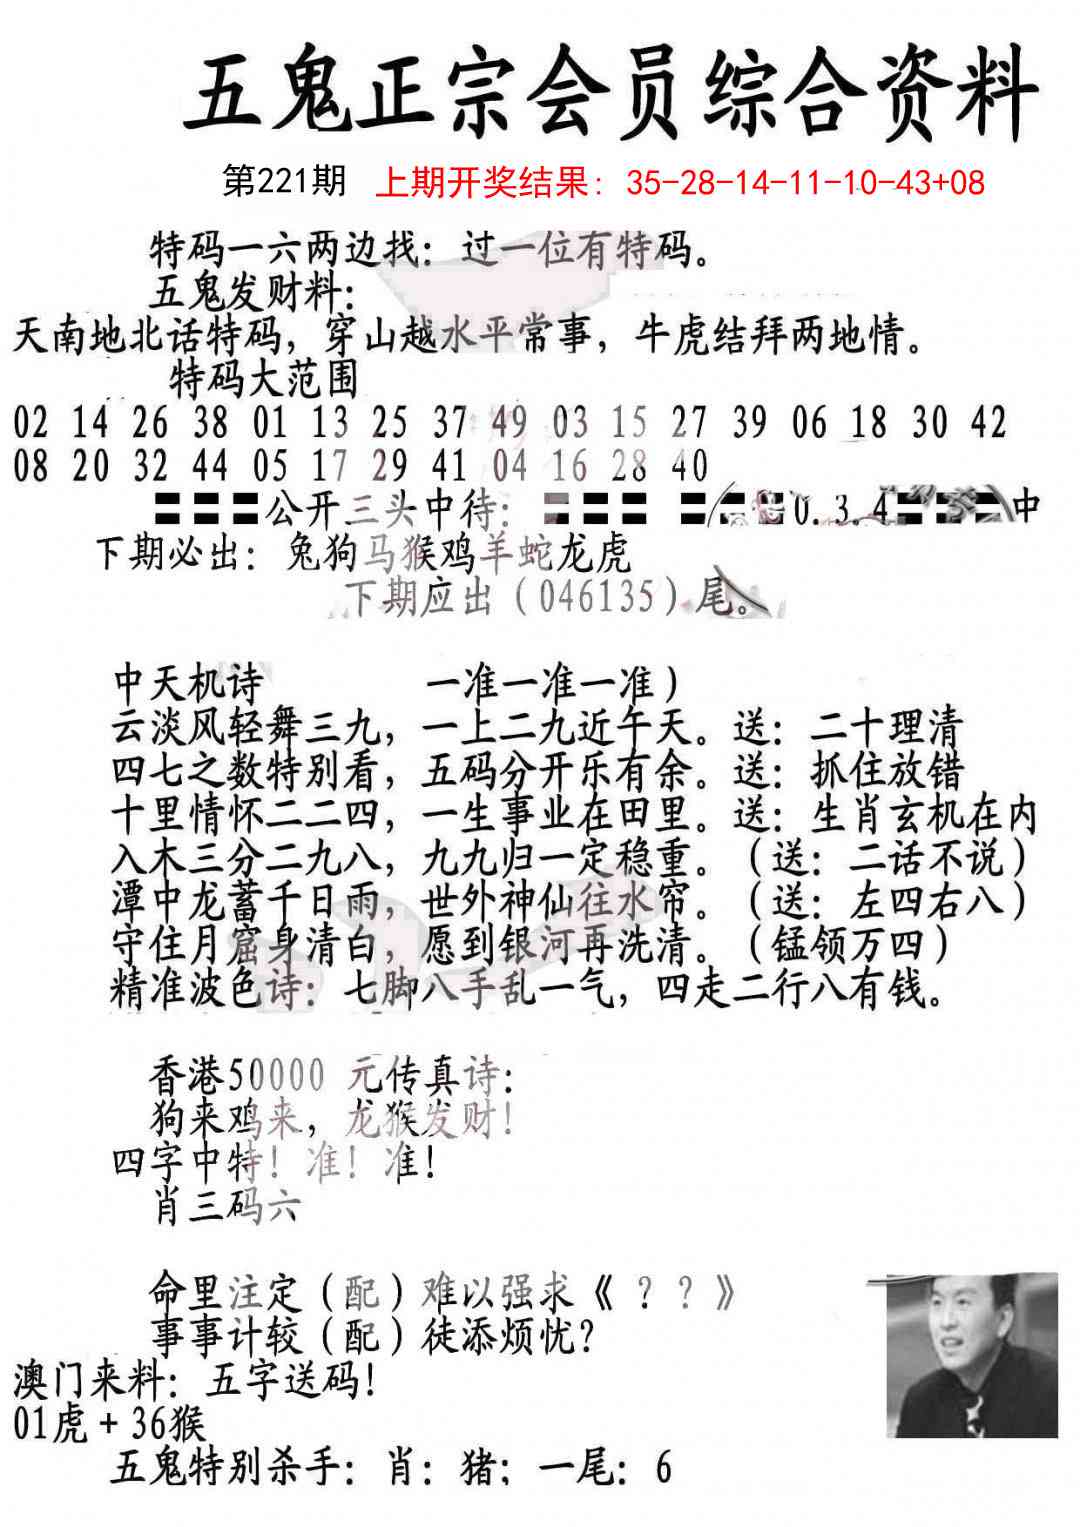 五鬼正宗会员综合资料
第221期 上期开奖结果：35-28-14-11-10-43+08
特码一六两边找：过一位有特码。
五鬼发财料：
天南地北话特码，穿山越水平常事，牛虎结拜两地情。
特码大范围
02 14 26 38 01 13 25 37 49 03 15 27 39 06 18 30 42
08 20 32 44 05 17 29 41 04 16 28 40
☷公开三头中待：☷ ☷0.3.4☷中
下期必出：兔狗马猴鸡羊蛇龙虎
下期应出（046135）尾。
中天机诗 一准一准一准）
云淡风轻舞三九，一上二九近午天。送：二十理清
四七之数特别看，五码分开乐有余。送：抓住放错
十里情怀二二四，一生事业在田里。送：生肖玄机在内
入木三分二九八，九九归一定稳重。（送：二话不说）
潭中龙蓄千日雨，世外神仙往水帘。（送：左四右八）
守住月窟身清白，愿到银河再洗清。（锰领万四）
精准波色诗：七脚八手乱一气，四走二行八有钱。
香港50000 元传真诗：
狗来鸡来，龙猴发财！
四字中特！准！准！
肖三码六
命里注定（配）难以强求《？？》
事事计较（配）徒添烦忧？
澳门来料：五字送码！
01虎+36猴
五鬼特别杀手：肖：猪；一尾：6